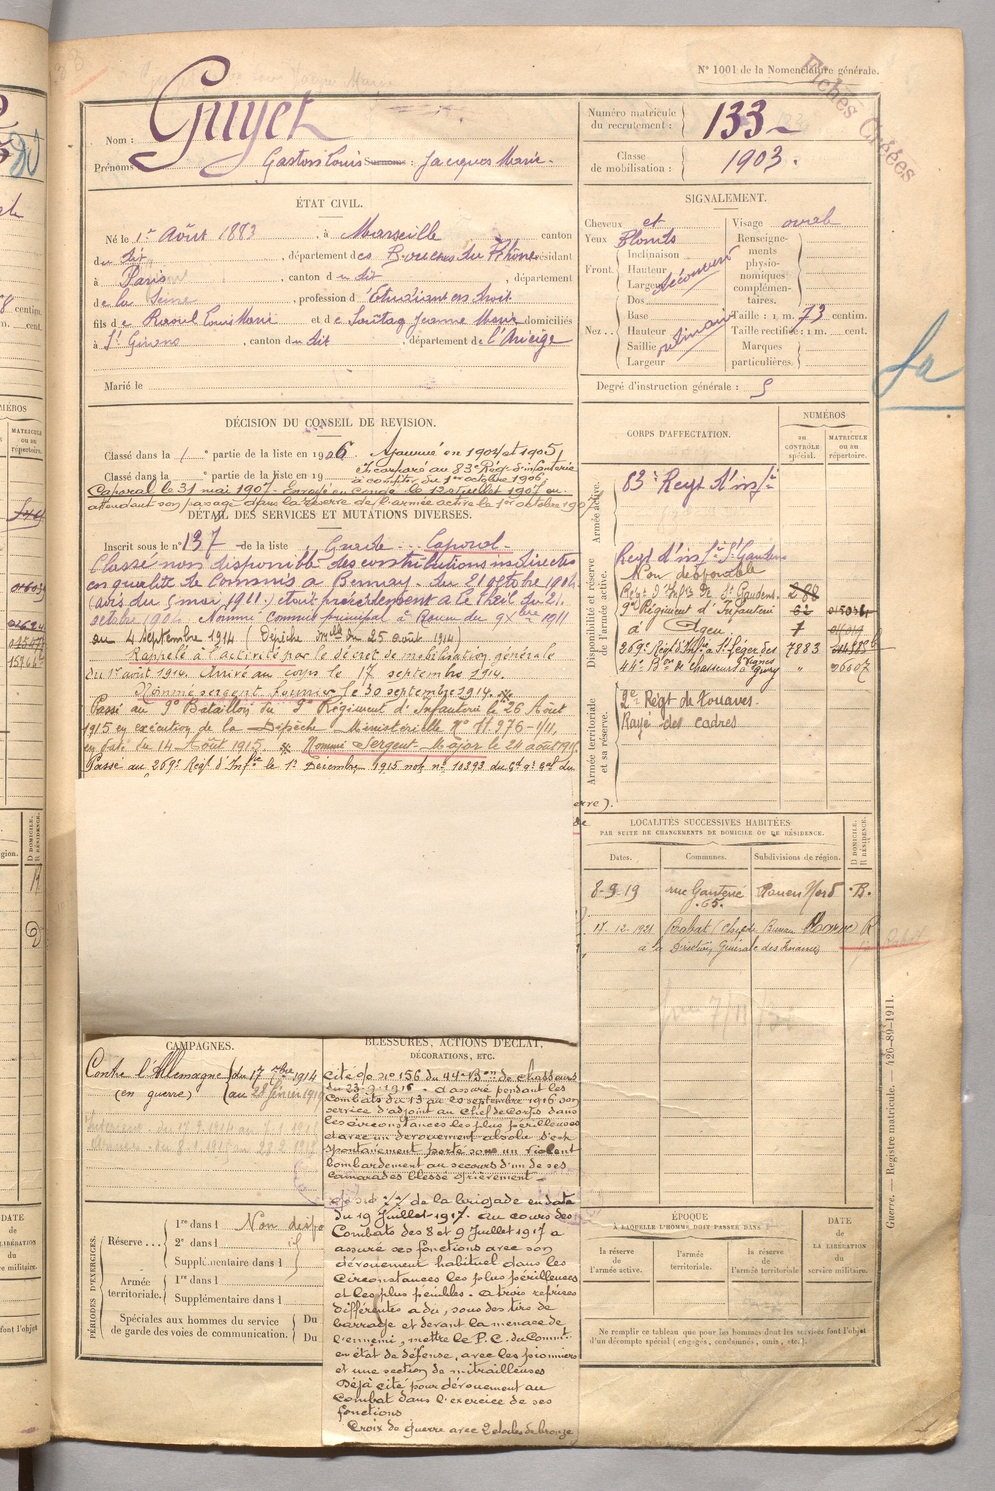 N° 1001 de la Nomenclature générale.
Fichés Créées
Nom : Guyet
Prénoms Gaston Louis Surnoms : Jacques Marie.
Numéro matricule du recrutement : 133
Classe de mobilisation : 1903.
ÉTAT CIVIL.
Né le 1er Août 1883, à Marseille canton
du dit, département des Bouches du Rhône résidant
à Paris, canton du dit, département
de la Seine, profession d'Etudiant en droit
fils de Raoul Louis Marie et de Jeanne Marie domiciliés
à St Girons, canton du dit, département de l'Ariège
Marié le
SIGNALEMENT.
Cheveux et
Yeux Blonds
Front. Inclinaison
Hauteur
Largeur
découvert
Nez.. Dos
Base
Hauteur
Saillie
Largeur
ordinaire
Visage ovale
Renseignements physionomiques complémentaires.
Taille : 1 m. 73 centim.
Taille rectifiée : 1 m. cent.
Marques particulières.
Degré d'instruction générale : 5
DÉCISION DU CONSEIL DE REVISION.
Classé dans la 1e partie de la liste en 1906 Ajourné en 1904 et 1905,
Classé dans la e partie de la liste en 19 Incorporé au 83e Rég. d'infanterie
à compter du 1er octobre 1906,
Caporal le 31 mai 1907. Envoyé en congé le 12 juillet 1907 en
attendant son passage dans la réserve de l'armée active le 1er octobre 1907
DÉTAIL DES SERVICES ET MUTATIONS DIVERSES.
Inscrit sous le n° 137 de la liste Caporal.
Classé non disponible des contributions indirectes
en qualité de Commis à Bernay du 21 octobre 1904
(avis du 5 mai 1911) et précédemment à Le Theil du 21.
octobre 1904. Nommé Commis principal à Rouen du 9bre 1911
au 4 Septembre 1914 (Dépêche mlle du 25 août 1914)
Rappelé à l'activité par le décret de mobilisation générale
du 1er août 1914. Arrivé au corps le 17 septembre 1914.
Nommé sergent fourrier le 30 septembre 1914.
Passé au 9e Bataillon du 9e Régiment d'Infanterie le 26 Août
1915 en exécution de la Dépêche Ministérielle N° 11976-1/11,
en date du 14 Août 1915. Nommé Sergent Major le 24 août 1915
Passé au 269e Régt d'Infie le 1er Décembre 1915 note n° 10393 du Gd Q. Gal du
CORPS D'AFFECTATION.
NUMÉROS
au CONTRÔLE spécial.
MATRICULE ou au répertoire.
Armée active.
83e Regt d'infie
Disponibilité et réserve de l'armée active.
Regt d'infie St Gaudens
Non disponible
Régt d'Infie de St Gaudens. 288
9e Régiment d'Infanterie 62
à Agen 7
269e Régt d'Infie à St Léger des Vignes 7883
44e Bon de chasseurs à Givry " 06607
Armée territoriale et sa réserve.
2e Régt de Zouaves.
Rayé des cadres
LOCALITÉS SUCCESSIVES HABITÉES
PAR SUITE DE CHANGEMENTS DE DOMICILE OU DE RÉSIDENCE.
Dates. Communes. Subdivisions de région. D DOMICILE. R RÉSIDENCE.
8-9-19 rue Ganterie 65. Rouen Nord
17-12-1921 Rabat (Chef de Bureau Maroc) R
à la Direction Générale des Finances)
CAMPAGNES.
Contre l'Allemagne du 17 7bre 1914
(en guerre) au 28 février 1919
BLESSURES, ACTIONS D'ÉCLAT,
DÉCORATIONS, ETC.
Cité o/o n° 156 du 44e Bon de chasseurs
du 23-9-1916 - a assuré pendant les
Combats du 13 au 20 septembre 1916 son
service d'adjoint au Chef de Corps dans
les circonstances les plus périlleuses
et avec un dévouement absolu. S'est
spontanément porté sous un violent
bombardement au secours d'un de ses
camarades blessé grièvement.
o/o n° 77 de la brigade en date
du 19 Juillet 1917. Au cours des
Combats des 8 et 9 Juillet 1917 a
assuré ses fonctions avec son
dévouement habituel dans les
circonstances les plus périlleuses
et les plus pénibles. A trois reprises
différentes a dû, sous des tirs de
barrage et devant la menace de
l'ennemi, mettre le P.C. du Commt
en état de défense, avec les pionniers
et une section de mitrailleuses
Déjà cité pour dévouement au
Combat dans l'exercice de ses
fonctions
Croix de guerre avec 2 étoiles de bronze
PÉRIODES D'EXERCICES.
Réserve.... 1re dans l Non dispo
2e dans l
Supplémentaire dans l
Armée territoriale. 1re dans l
Supplémentaire dans l
Spéciales aux hommes du service de garde des voies de communication. Du
Du
ÉPOQUE
À LAQUELLE L'HOMME DOIT PASSER DANS
la réserve de l'armée active.
l'armée territoriale.
la réserve de l'armée territoriale
DATE de LA LIBÉRATION du service militaire.
Ne remplir ce tableau que pour les hommes dont les services font l'objet
d'un décompte spécial (engagés, condamnés, omis, etc.).
Guerre. — Registre matricule. — 426-89-1911.